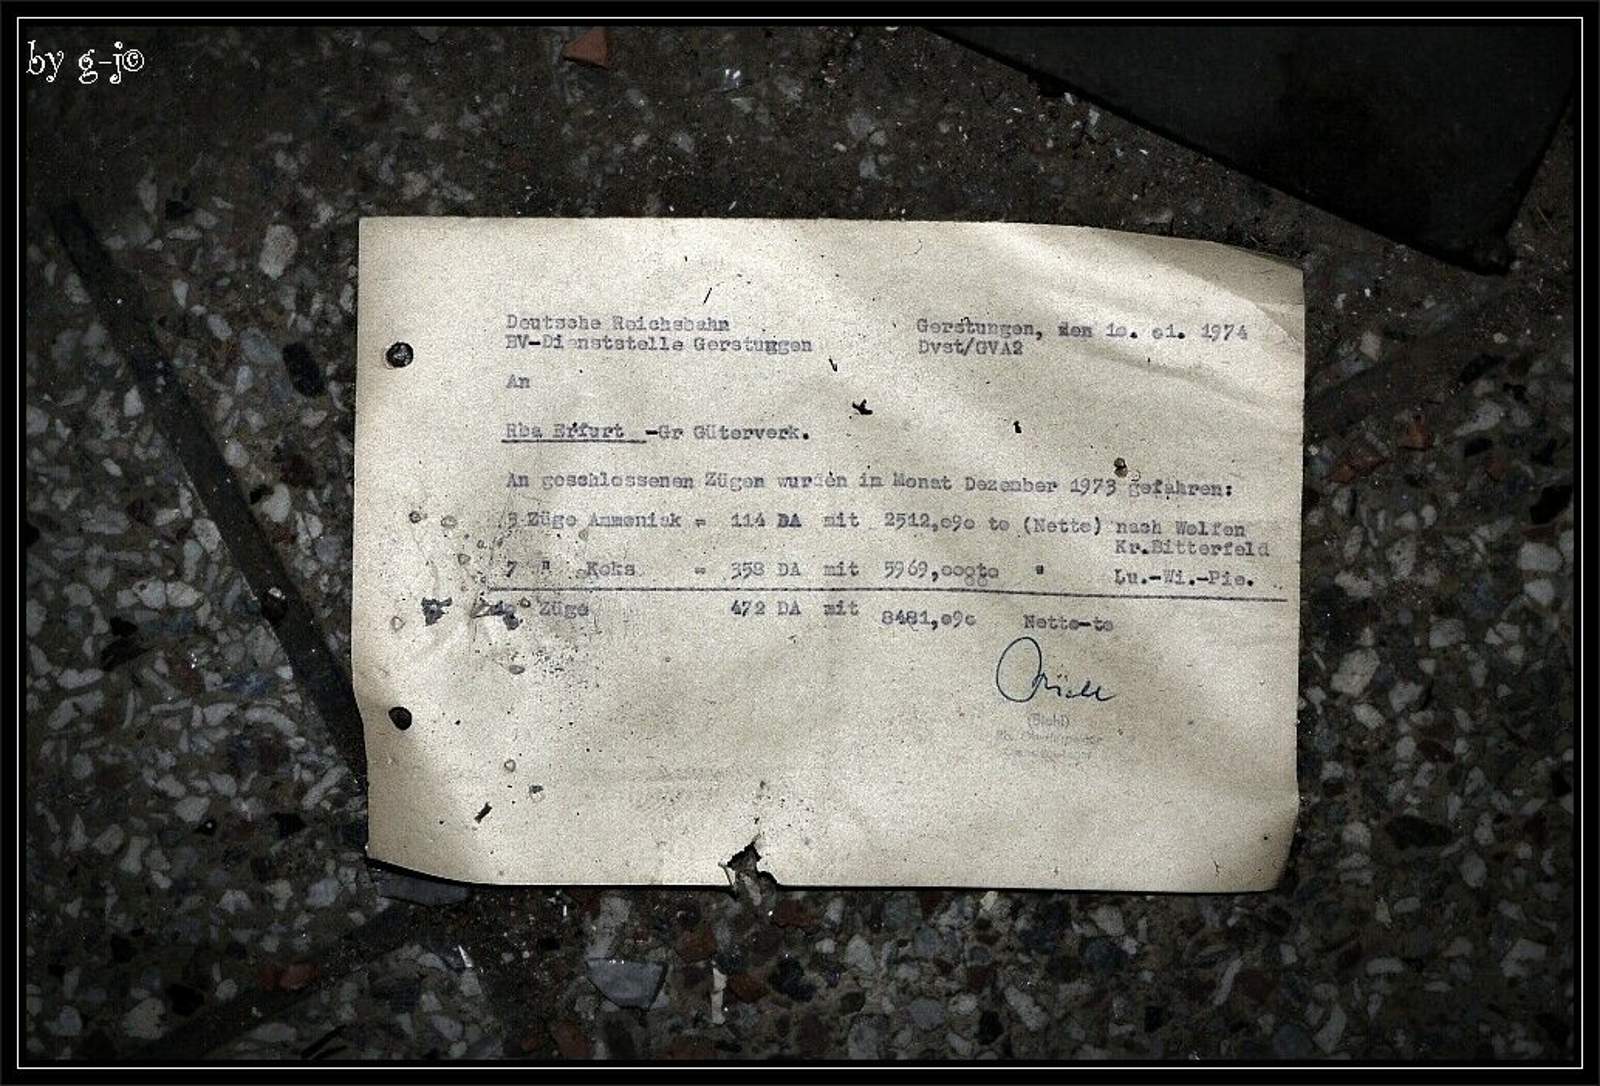 by g-j©
Deutsche Reichsbahn
BV-Dienststelle Gerstungen
Gerstungen, den 1o. o1. 1974
Dvst/GVA2
An
Rba Erfurt -Gr Güterverk.
An geschlossenen Zügen wurden im Monat Dezember 1973 gefahren:
3 Züge Ammoniak = 114 DA mit 2512,o9o to (Netto) nach Wolfen
Kr.Bitterfeld
7 " Koks = 358 DA mit 5969,oooto " Lu.-Wi.-Pie.
1o Züge 472 DA mit 8481,o9o Netto-to